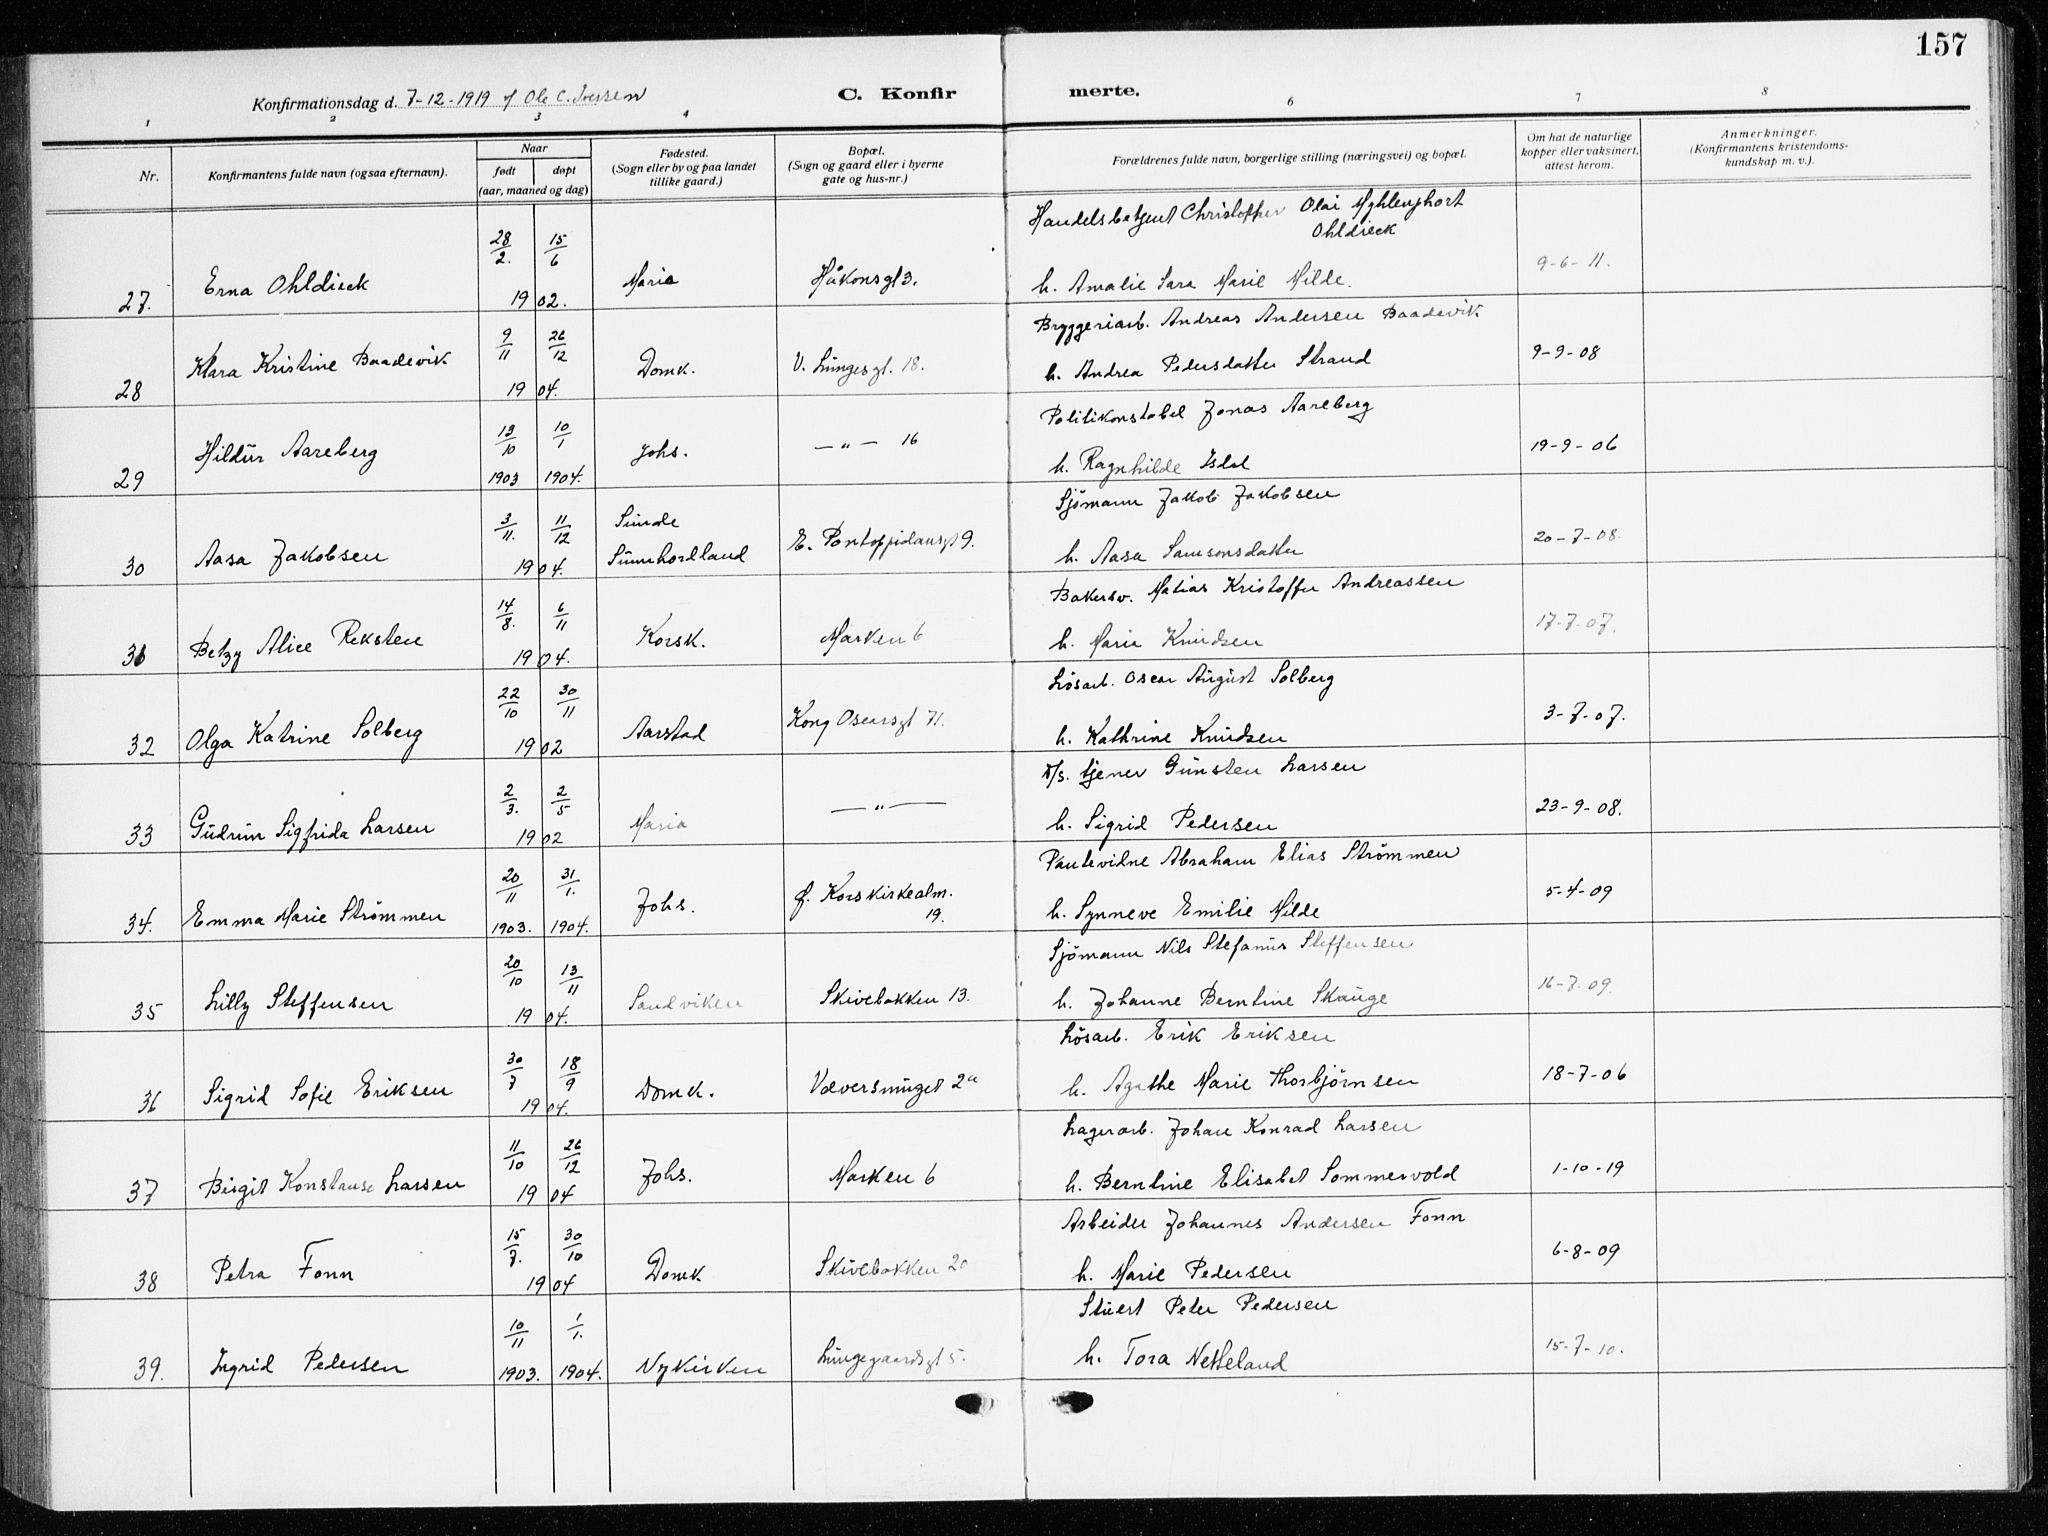 157
Konfirmationsdag d. 7-12-1919 C. Konfir merte.
1 2 3 4 6 7 8
Nr.
Konfirmantens fulde navn (ogsaa efternavn).
Naar
født døpt
(aar, maaned og dag)
Fødested.
(Sogn eller by og paa landet
tillike gaard.)
Bopæl.
(Sogn og gaard eller i byerne
gate og hus-nr.)
Forældrenes fulde navn, borgerlige stilling (næringsvei) og bopæl.
Om hat de naturlige
kopper eller vaksinert,
attest herom.
Anmerkninger.
(Konfirmantens kristendoms-
kundskap m. v.).
Handelsbetjent Christopher Olai
Ohldieck
28/2. 15/6
27. Erna Ohldieck 1902. Maria Håkonsgt 3. h. Amalie Sara Marie Milde. 9-6-11.
9/11 26/12 Bryggeriarb. Andreas Andersen Baadevik
28 Klara Kristine Baadevik 1904. Domk. V. Lungesgt. 18. h. Andrea Pedersdatter Strand 9-9-08
13/10 10/1 Politikonstabel Jonas Aareberg
29 Hildur Aareberg 1903 1904. Johs. — " — 16 h. Ragnhilde Isdal 19-9-06
3/11. 11/12 Sunde Sjömann Jakob Jakobsen
30 Aasa Jakobsen 1904. Sunnhordland E. Pontoppidansgt 9. h. Aasa Samsonsdatter 20-7-08.
14/8. 6/11 Bakersv. Matias Kristoffer Andreassen
31 Betzy Alice Reksten 1904. Korsk. Marken 6 h. Marie Knudsen 17-7-07.
22/10 30/11 Lösarb. Oscar August Solberg
32 Olga Katrine Solberg 1902 Aarstad Kong Oscarsgt 71. h. Kathrine Knudsen 3-7-07.
2/3. 2/5 D/s. tjener Gunsten Larsen
33 Gudrun Sigfrida Larsen 1902 Maria — " — h. Sigrid Pedersen 23-9-08.
20/11 31/1. Pantevidne Abraham Elias Strömmen
34. Emma Marie Strömmen 1903. 1904. Johs. Ø. Korskirkealm. 19. h. Synneve Emilie Milde 5-4-09
20/10 13/11 Sjömann Nils Stefanus Steffensen
35 Lilly Steffensen 1904. Sandviken Skivebakken 13. h. Johanne Berntine Skauge 16-7-09.
30/7 18/9 Lösarb. Erik Eriksen
36 Sigrid Sofie Eriksen 1904. Domk. Væversmuget 2a h. Agathe Marie Thorbjörnsen 18-7-06
11/10 26/12 Lagerarb. Johan Konrad Larsen
37 Birgit Konstanse Larsen 1904 Johs. Marken 6 h. Berntine Elisabet Sommervold 1-10-19
15/7. 30/10 Arbeider Johannes Andersen Fonn
38 Petra Fonn 1904 Domk Skivebakken 20 h. Marie Pedersen 6-8-09
10/11 1/1. Stuert Peter Pedersen
39. Ingrid Pedersen 1903. 1904. Nykirken Lungegaardsgt 5. h. Tora Netteland 15-7-10.